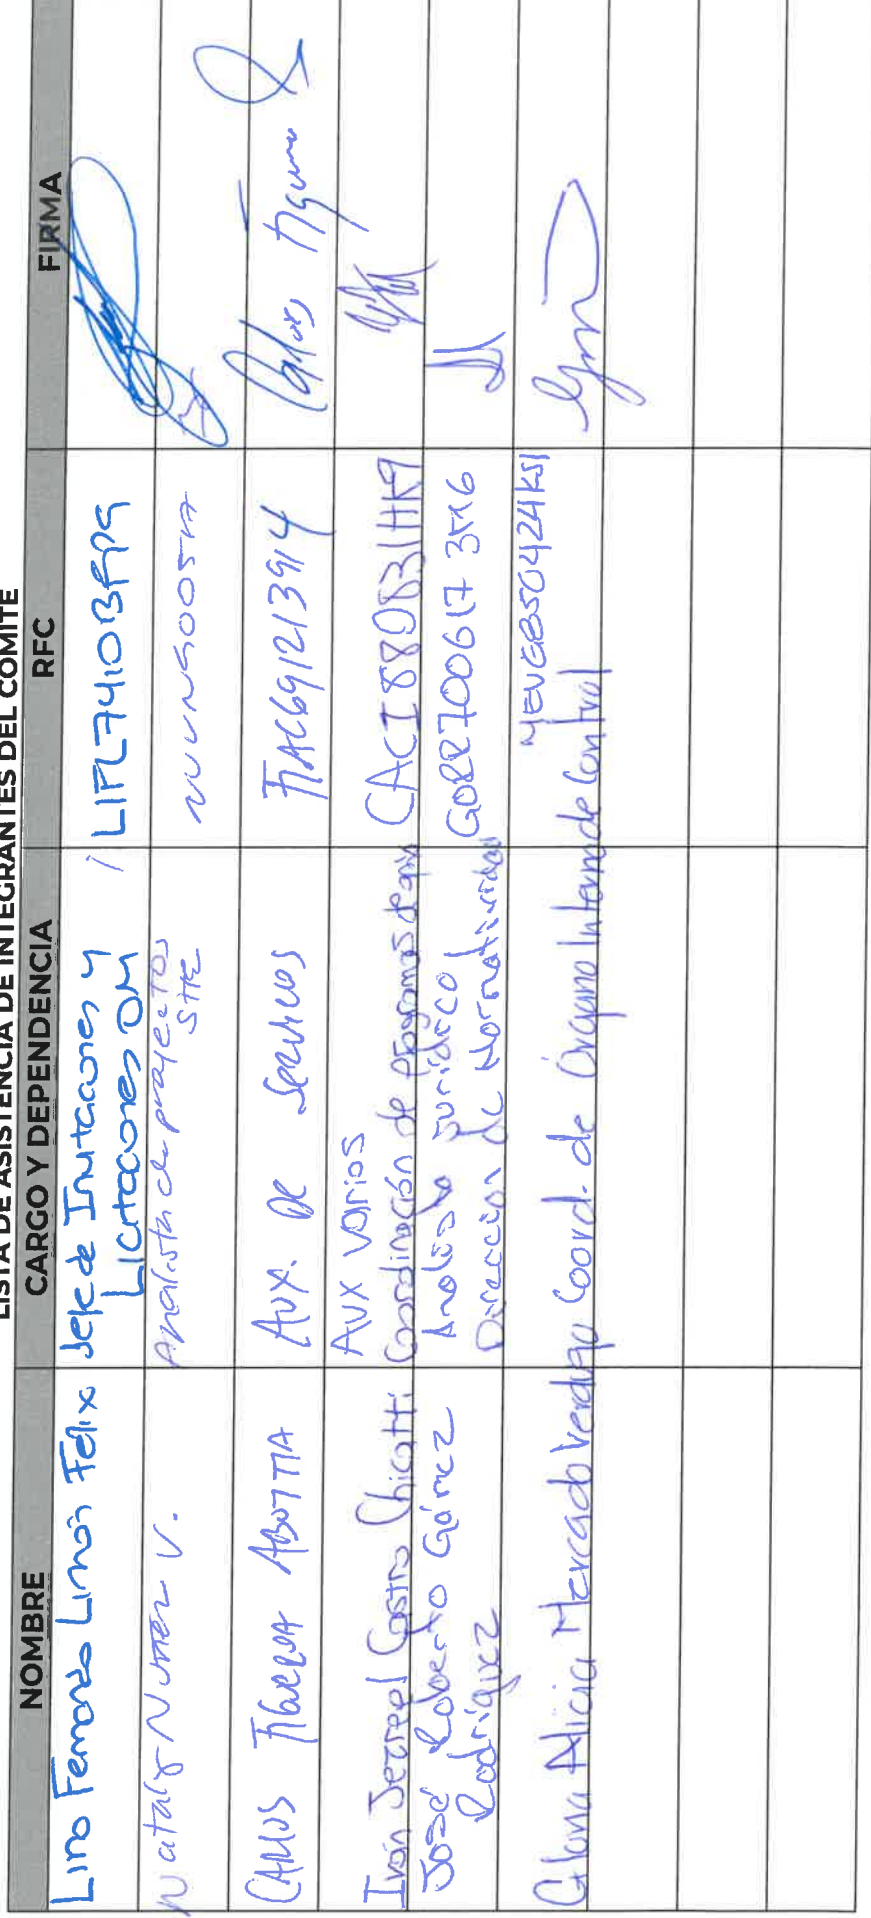 LISTA DE ASISTENCIA DE INTEGRANTES DEL COMITÉ
NOMBRE CARGO Y DEPENDENCIA RFC FIRMA
Lino Fernando Limón Félix Jefe de Invitaciones y Licitaciones OM LIFL741013
Nataly Nuñez V. Analista de proyectos
CARLOS FIGUEROA ABUTTIA AUX. DE SERVICIOS FIAC691213914 Carlos Figueroa
Iván Jezreel Castro Chicatti AUX varios
Coordinación de Programas CACI880831HK9
José Roberto Gómez Rodríguez Analista Jurídico
Dirección de Normatividad GORR700617 3M6
Gloria Alicia Mercado Verdugo Coord. de Órgano Interno de Control MEVG850424KS1